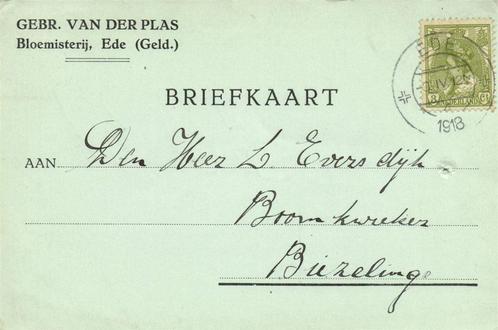 GEBR. VAN DER PLAS
Bloemisterij, Ede (Geld.)
EDE
1918
3 NEDERLAND ct
BRIEFKAART
AAN Den Heer L. Eversdijk
Boomkweker
Biezelinge